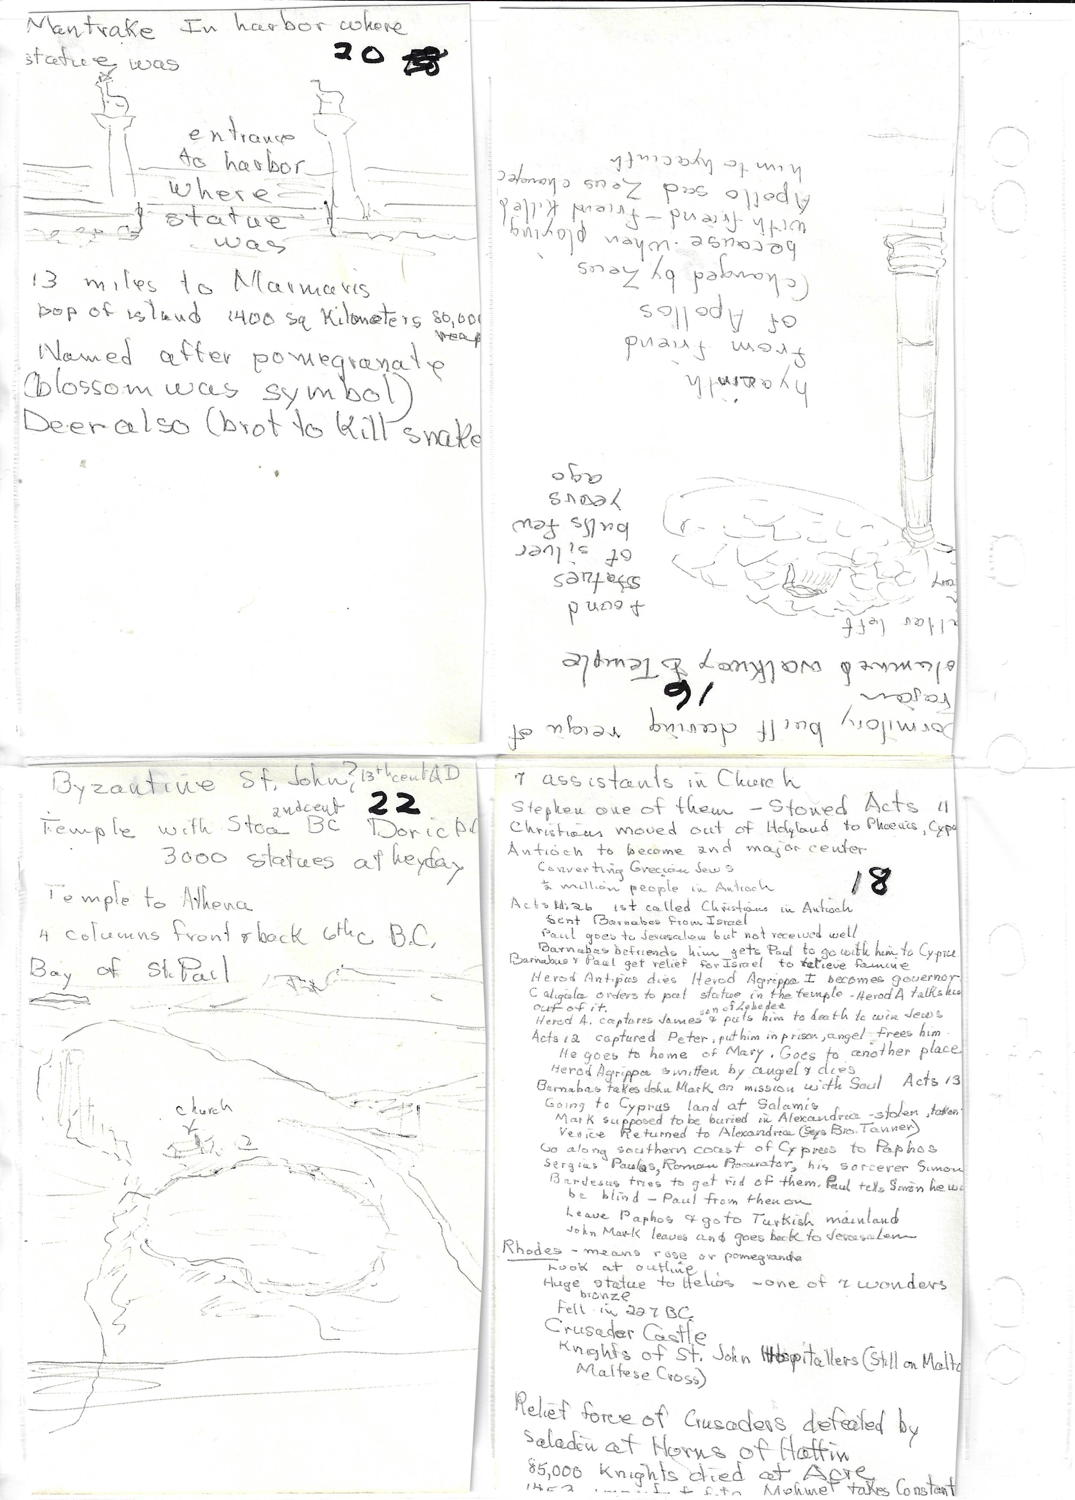 Mantrake In harbor where
statue was
20
entrance
to harbor
where
statue
was
13 miles to Marmaris
pop of island 1400 sq Kilometers 80,000
Named after pomegranate
(blossom was symbol)
Deer also (brot to Kill snake
Dormitory built during reign of
16
Trajan
columned walkway to Temple
altar left
found
statues
of silver
bulls few
years
ago
hyacinth
from friend
of Apollos
(changed by Zeus
because when playing
with friend - friend killed
Apollo said Zeus changed
him to hyacinth
Byzantine St. John? 13th cent AD
2nd cent
22
Temple with Stoa BC Doric
3000 statues at heyday
Temple to Athena
4 columns front & back 6th c B.C.
Bay of St. Paul
church
7 assistants in Church
Stephen one of them - Stoned Acts 11
Christians moved out of Holyland to Phoenis, Cyp
Antioch to become and major center
Converting Grecian Jews
18
½ million people in Antioch
Acts 11:26 1st called Christians in Antioch
Sent Barnabas from Israel
Paul goes to Jerusalem but not received well
Barnabas befriends him gets Paul to go with him to Cyprus
Barnabus & Paul get relief for Israel to relieve famine
Herod Antipas dies Herod Agrippa I becomes governor
Caligula orders to put statue in the temple - Herod A talks him
out of it.
son of Zebedee
Herod A. captures James & puts him to death to win Jews
Acts 12 captured Peter, put him in prison, angel frees him.
He goes to home of Mary. Goes to another place
Herod Agrippa smitten by angel & dies
Barnabas takes John Mark on mission with Saul Acts 13
Going to Cyprus land at Salamis
Mark supposed to be buried in Alexandria - stolen, taken
Venice Returned to Alexandria (Says Bro. Tanner)
Go along southern coast of Cypress to Paphos
Sergius Paulus, Roman Procurator, his sorcerer Simon
Bardesus tries to get rid of them. Paul tells Simon he wi
be blind - Paul from then on
Leave Paphos & go to Turkish mainland
John Mark leaves and goes back to Jerusalem
Rhodes - means rose or pomegranate
Look at outline
Huge statue to Helios - one of 7 wonders
bronze
Fell in 227 BC
Crusader Castle
Knights of St. John Hospitallers (Still on Malta
Maltese Cross)
Relief force of Crusaders defeated by
Saladin at Horns of Hattin
85,000 Knights died at Acre
Mehmet takes Constant